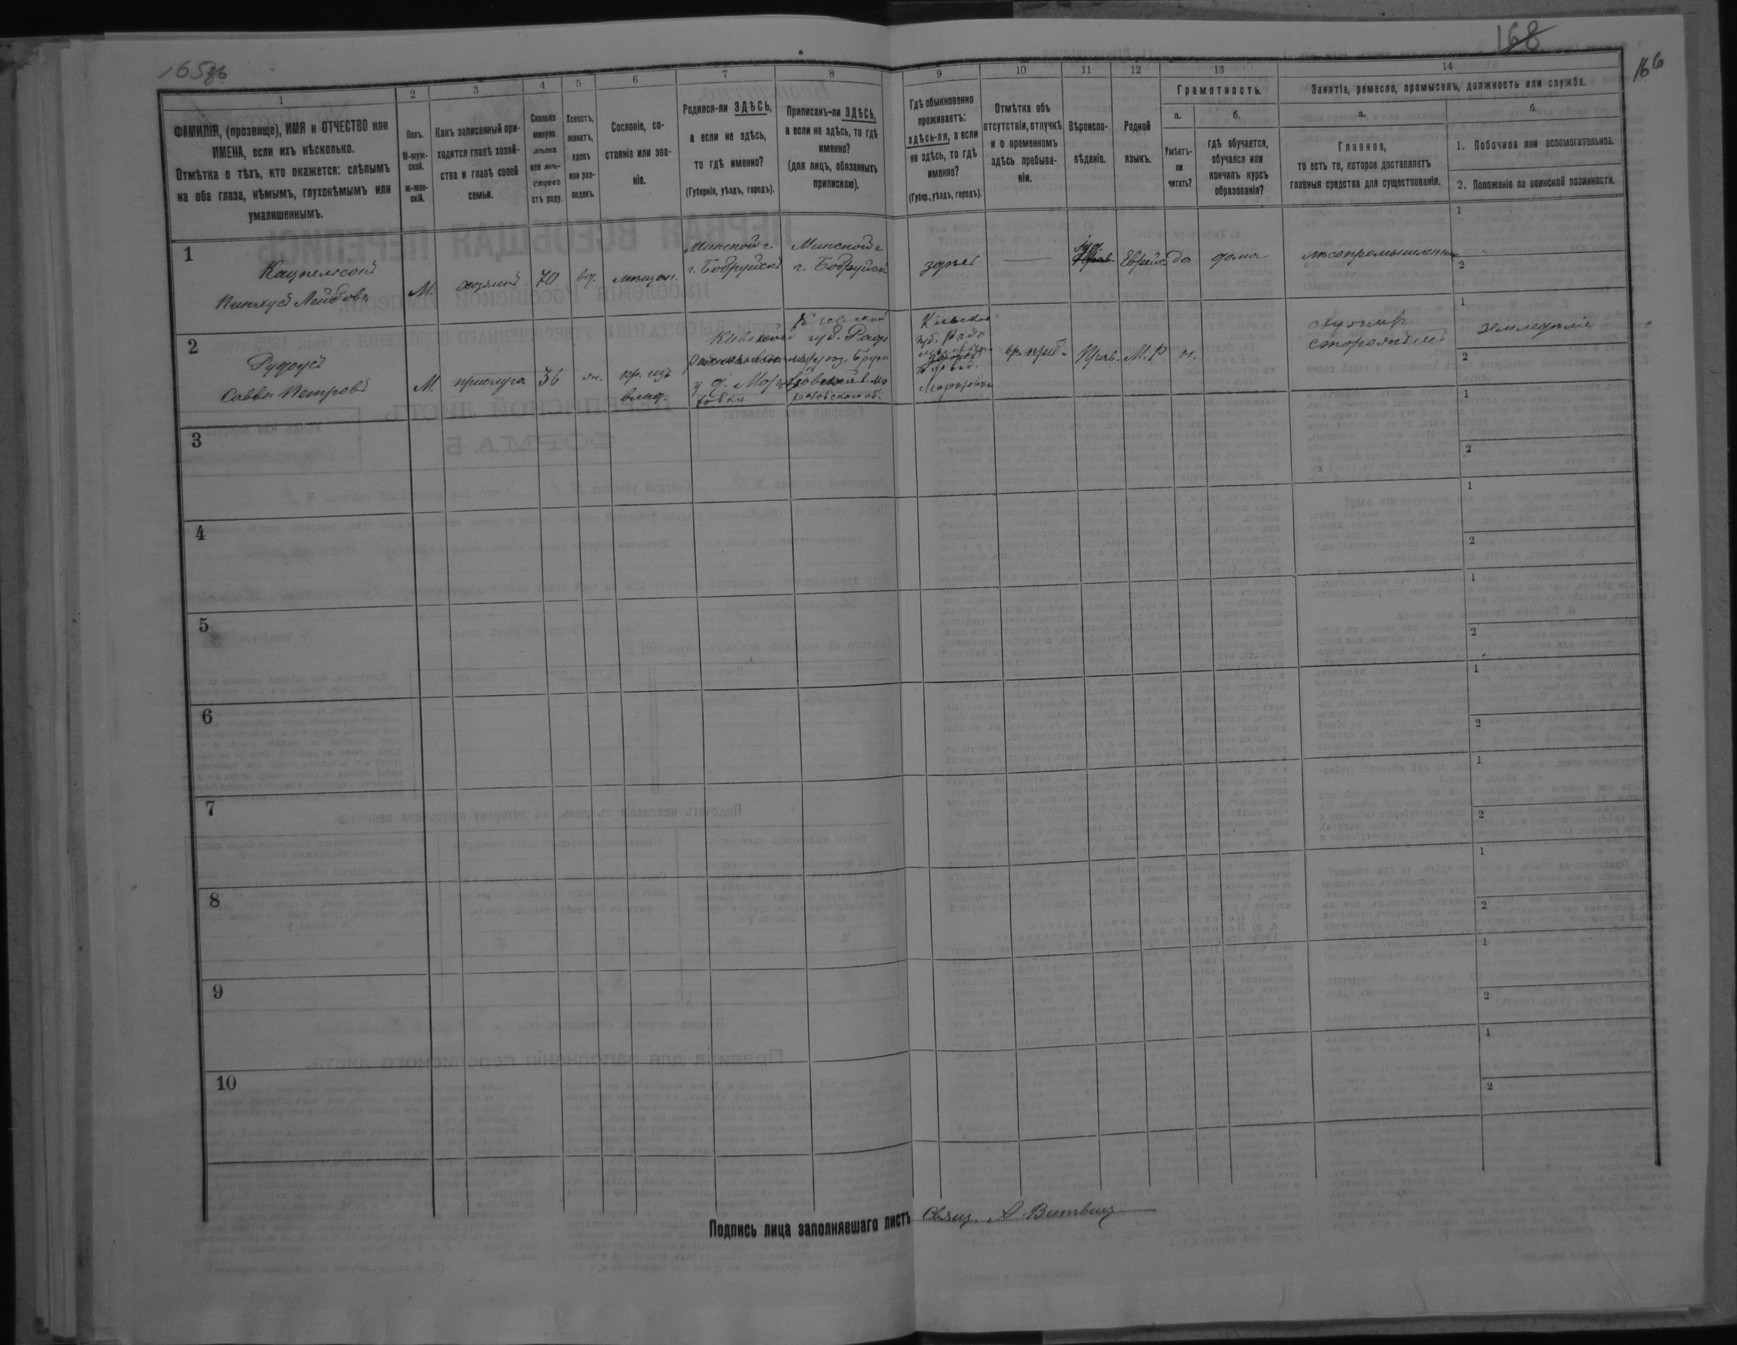 165об
168
166
1
ФАМИЛІЯ, (прозвище), ИМЯ и ОТЧЕСТВО или
ИМЕНА, если ихъ нѣсколько.
Отмѣтка о тѣхъ, кто окажется: слѣпымъ
на оба глаза, нѣмымъ, глухонѣмымъ или
умалишеннымъ.
2
Полъ.
М-муж-
ской.
ж-жен-
скій.
3
Какъ записанный при-
ходится главѣ хозяй-
ства и главѣ своей
семьи.
4
Сколько
минуло
лѣтъ
или мѣ-
сяцевъ
отъ роду.
5
Холостъ,
женатъ,
вдовъ
или раз-
веденъ.
6
Сословіе, со-
стояніе или зва-
ніе.
7
Родился-ли ЗДѢСЬ,
а если не здѣсь,
то гдѣ именно?
(Губернія, уѣздъ, городъ).
8
Приписанъ-ли ЗДѢСЬ,
а если не здѣсь, то гдѣ
именно?
(для лицъ, обязанныхъ
припискою).
9
Гдѣ обыкновенно
проживаетъ:
здѣсь-ли, а если
не здѣсь, то гдѣ
именно?
(Губер., уѣздъ, городъ).
10
Отмѣтка объ
отсутствіи, отлучкѣ
и о временномъ
здѣсь пребыва-
ніи.
11
Вѣроиспо-
вѣданіе.
12
Родной
языкъ.
13
Грамотность.
а.
Умѣетъ-
ли
читать?
б.
Гдѣ обучается,
обучался или
кончилъ курсъ
образованія?
14
Занятіе, ремесло, промыселъ, должность или служба.
а.
Главное,
то есть то, которое доставляетъ
главныя средства для существованія.
б.
1. Побочное или вспомогательное.
2. Положеніе по воинской повинности.
1
Каценельсонъ
Пинхусъ Лейбовъ
М.
хозяинъ
70
вд.
мещан.
Минской г.
г. Бобруйскъ
Минской г
г. Бобруйскъ
здѣсь
іуд.
Еврейс
да
дома
лѣсопромышленн
1
2
2
Савва Петровъ
М
прислуга
36
ж.
кр. изъ
влад.
Кіевской губ. Радо
Кіевской
губ. Радо
Моро
зовки
Морозовка
вр. преб.
Прав.
М.Р
н.
сторожитъ
1 земледѣліе
2
3
1
2
4
1
2
5
1
2
6
1
2
7
1
2
8
1
2
9
1
2
10
1
2
Подпись лица заполнявшаго листъ Свящ. А. Витвиц